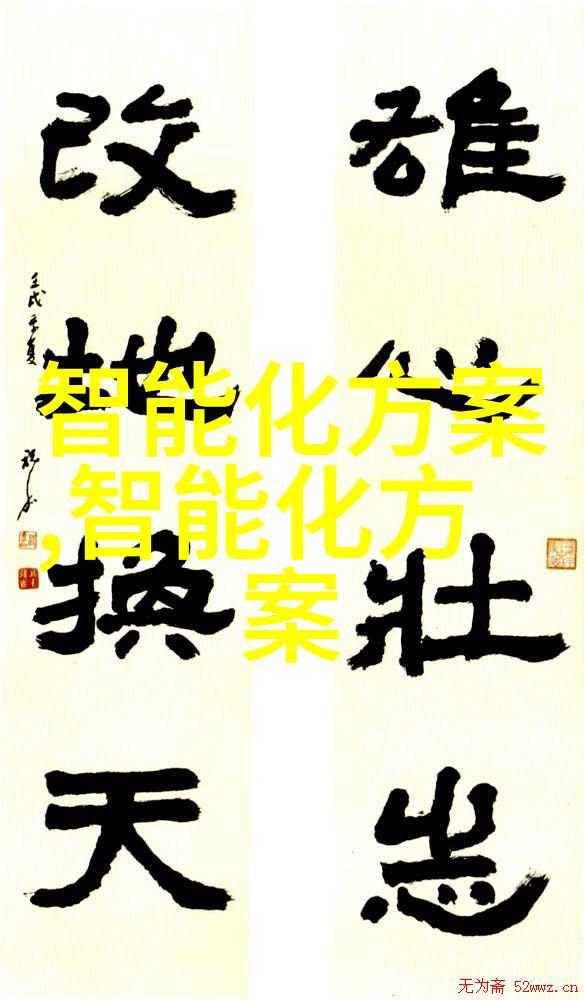 雄心壮志
改地换天
壬戌季夏
智能化方案
,智能化方
案
无为斋 52wwz.cn